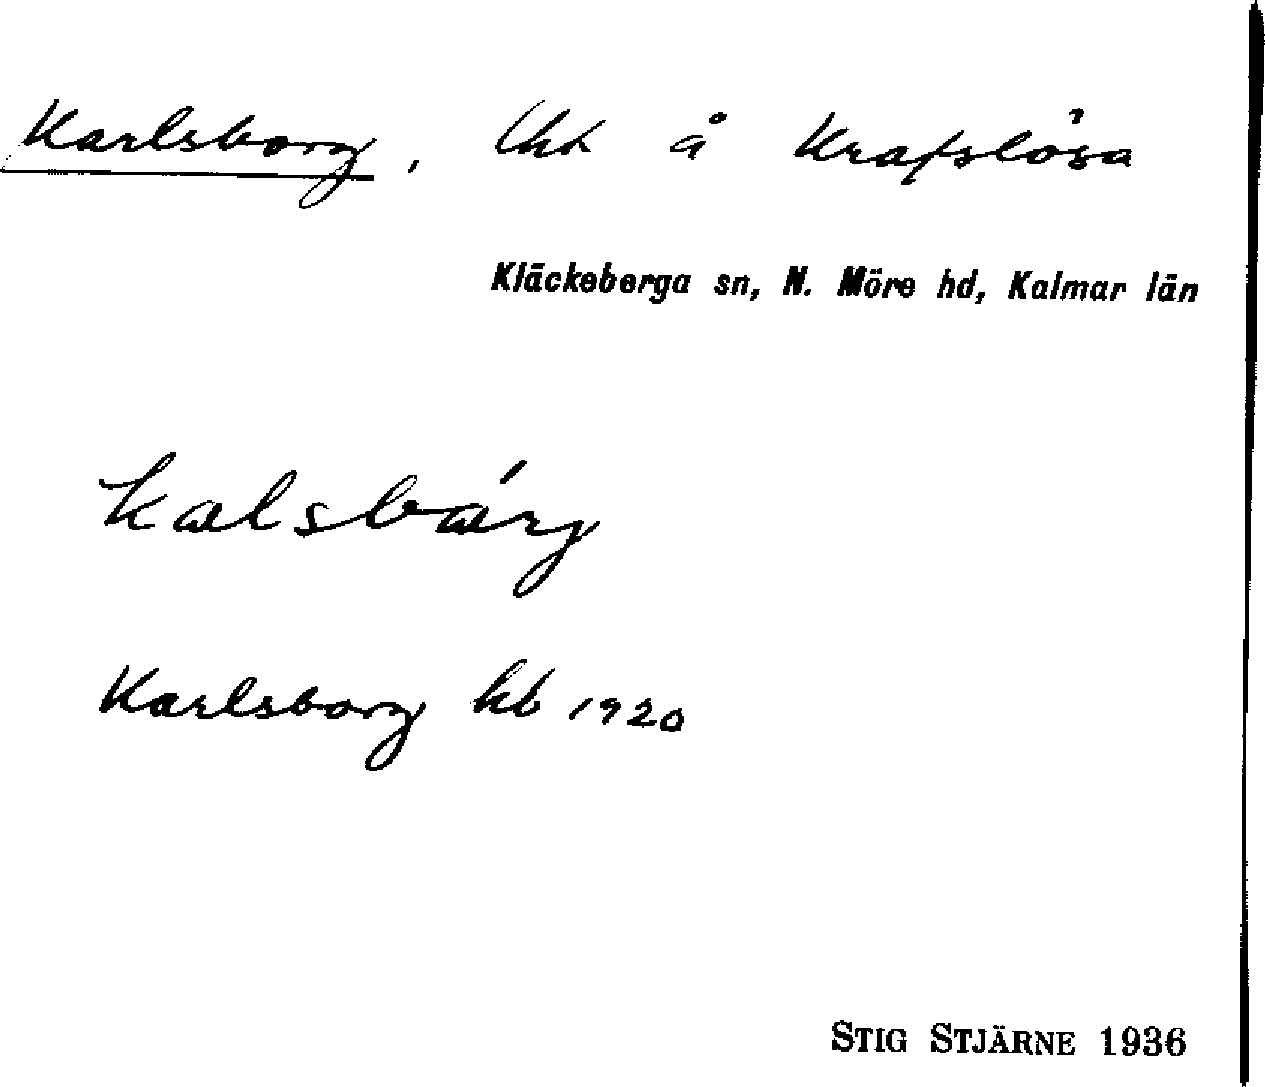 Karlsborg, lht å Krafslösa
Kläckeberga sn, N. Möre hd, Kalmar län
kalsbárj
Karlsborg hb 1920
STIG STJÄRNE 1936